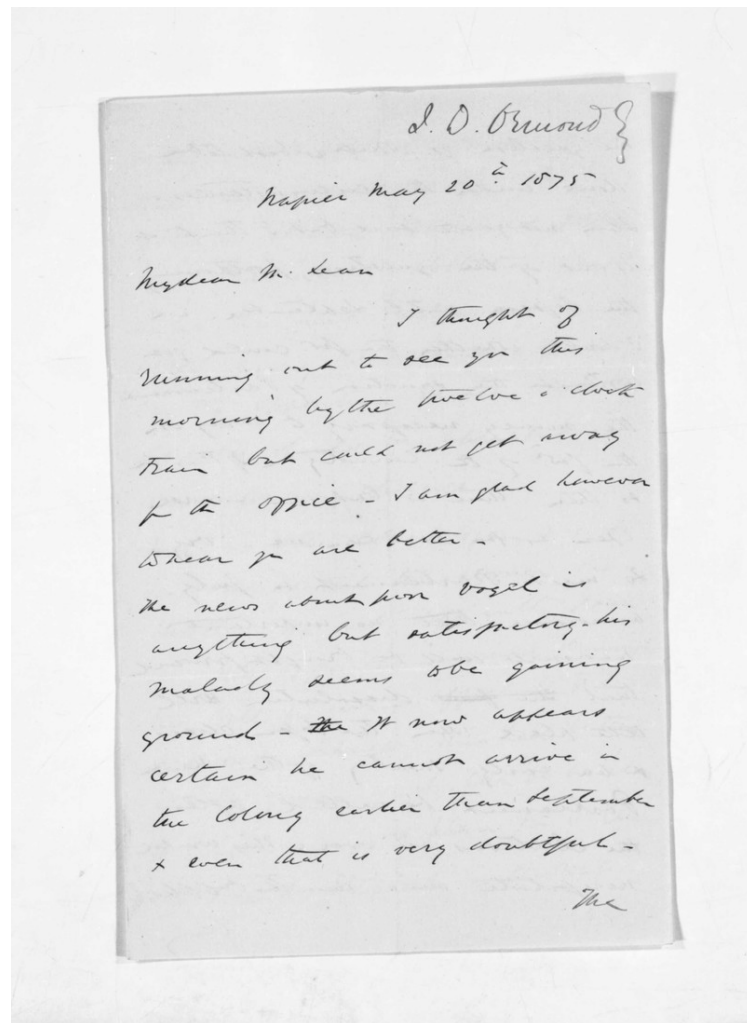 J. D. Ormond
Napier May 20th 1875
My dear McLean
I thought of
running out to see you this
morning by the twelve o'clock
train but could not get away
fm the office - I am glad however
to hear you are better -
the news about poor Vogel is
anything but satisfactory - his
malady seems to be gaining
ground - the It now appears
certain he cannot arrive in
the Colony earlier than September
& even that is very doubtful -
The